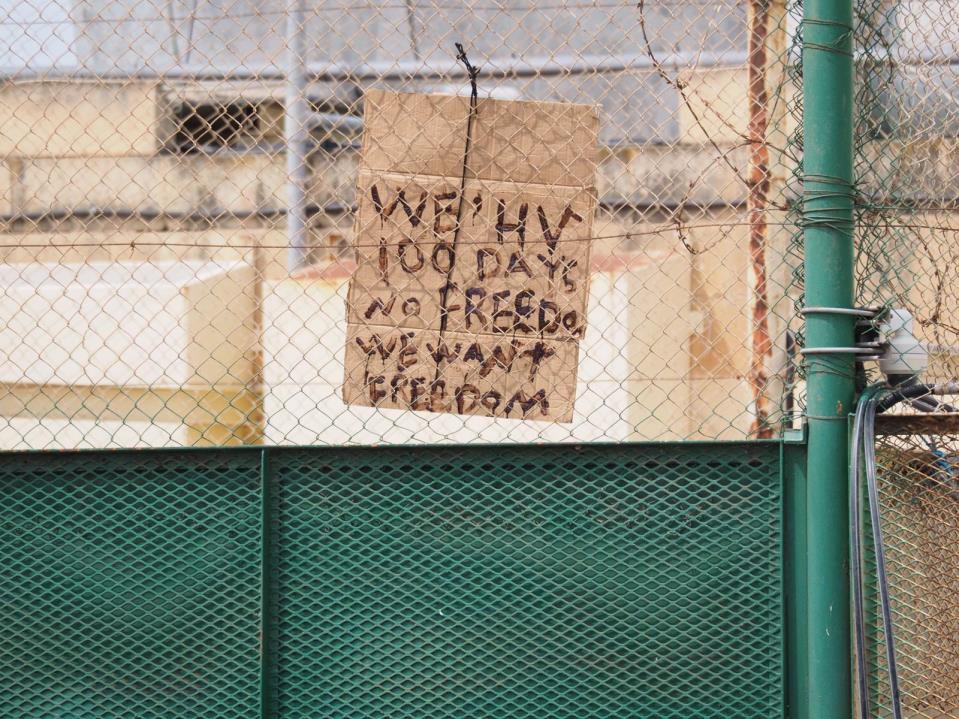 WE'HV
100 DAYS
NO FREEDO
WE WANT
FREEDOM